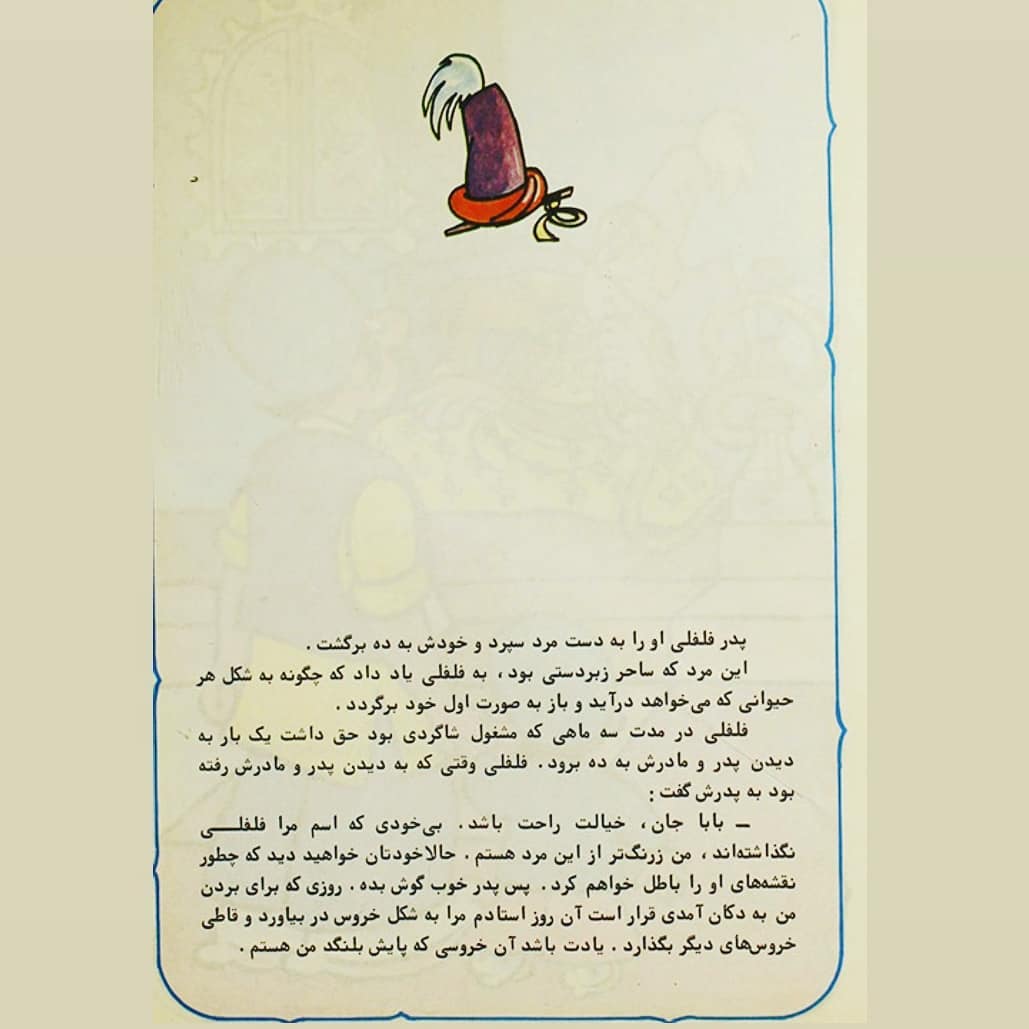 پدر فلفلی او را به دست مرد سپرد و خودش به ده برگشت .
این مرد که ساحر زبردستی بود ، به فلفلی یاد داد که چگونه به شکل هر
حیوانی که می‌خواهد درآید و باز به صورت اول خود برگردد .
فلفلی در مدت سه ماهی که مشغول شاگردی بود حق داشت یک بار به
دیدن پدر و مادرش به ده برود . فلفلی وقتی که به دیدن پدر و مادرش رفته
بود به پدرش گفت :
ــ بابا جان ، خیالت راحت باشد . بی‌خودی که اسم مرا فلفلــــی
نگذاشته‌اند ، من زرنگ‌تر از این مرد هستم . حالاخودتان خواهید دید که چطور
نقشه‌های او را باطل خواهم کرد . پس پدر خوب گوش بده . روزی که برای بردن
من به دکان آمدی قرار است آن روز استادم مرا به شکل خروس در بیاورد و قاطی
خروس‌های دیگر بگذارد . یادت باشد آن خروسی که پایش بلنگد من هستم .